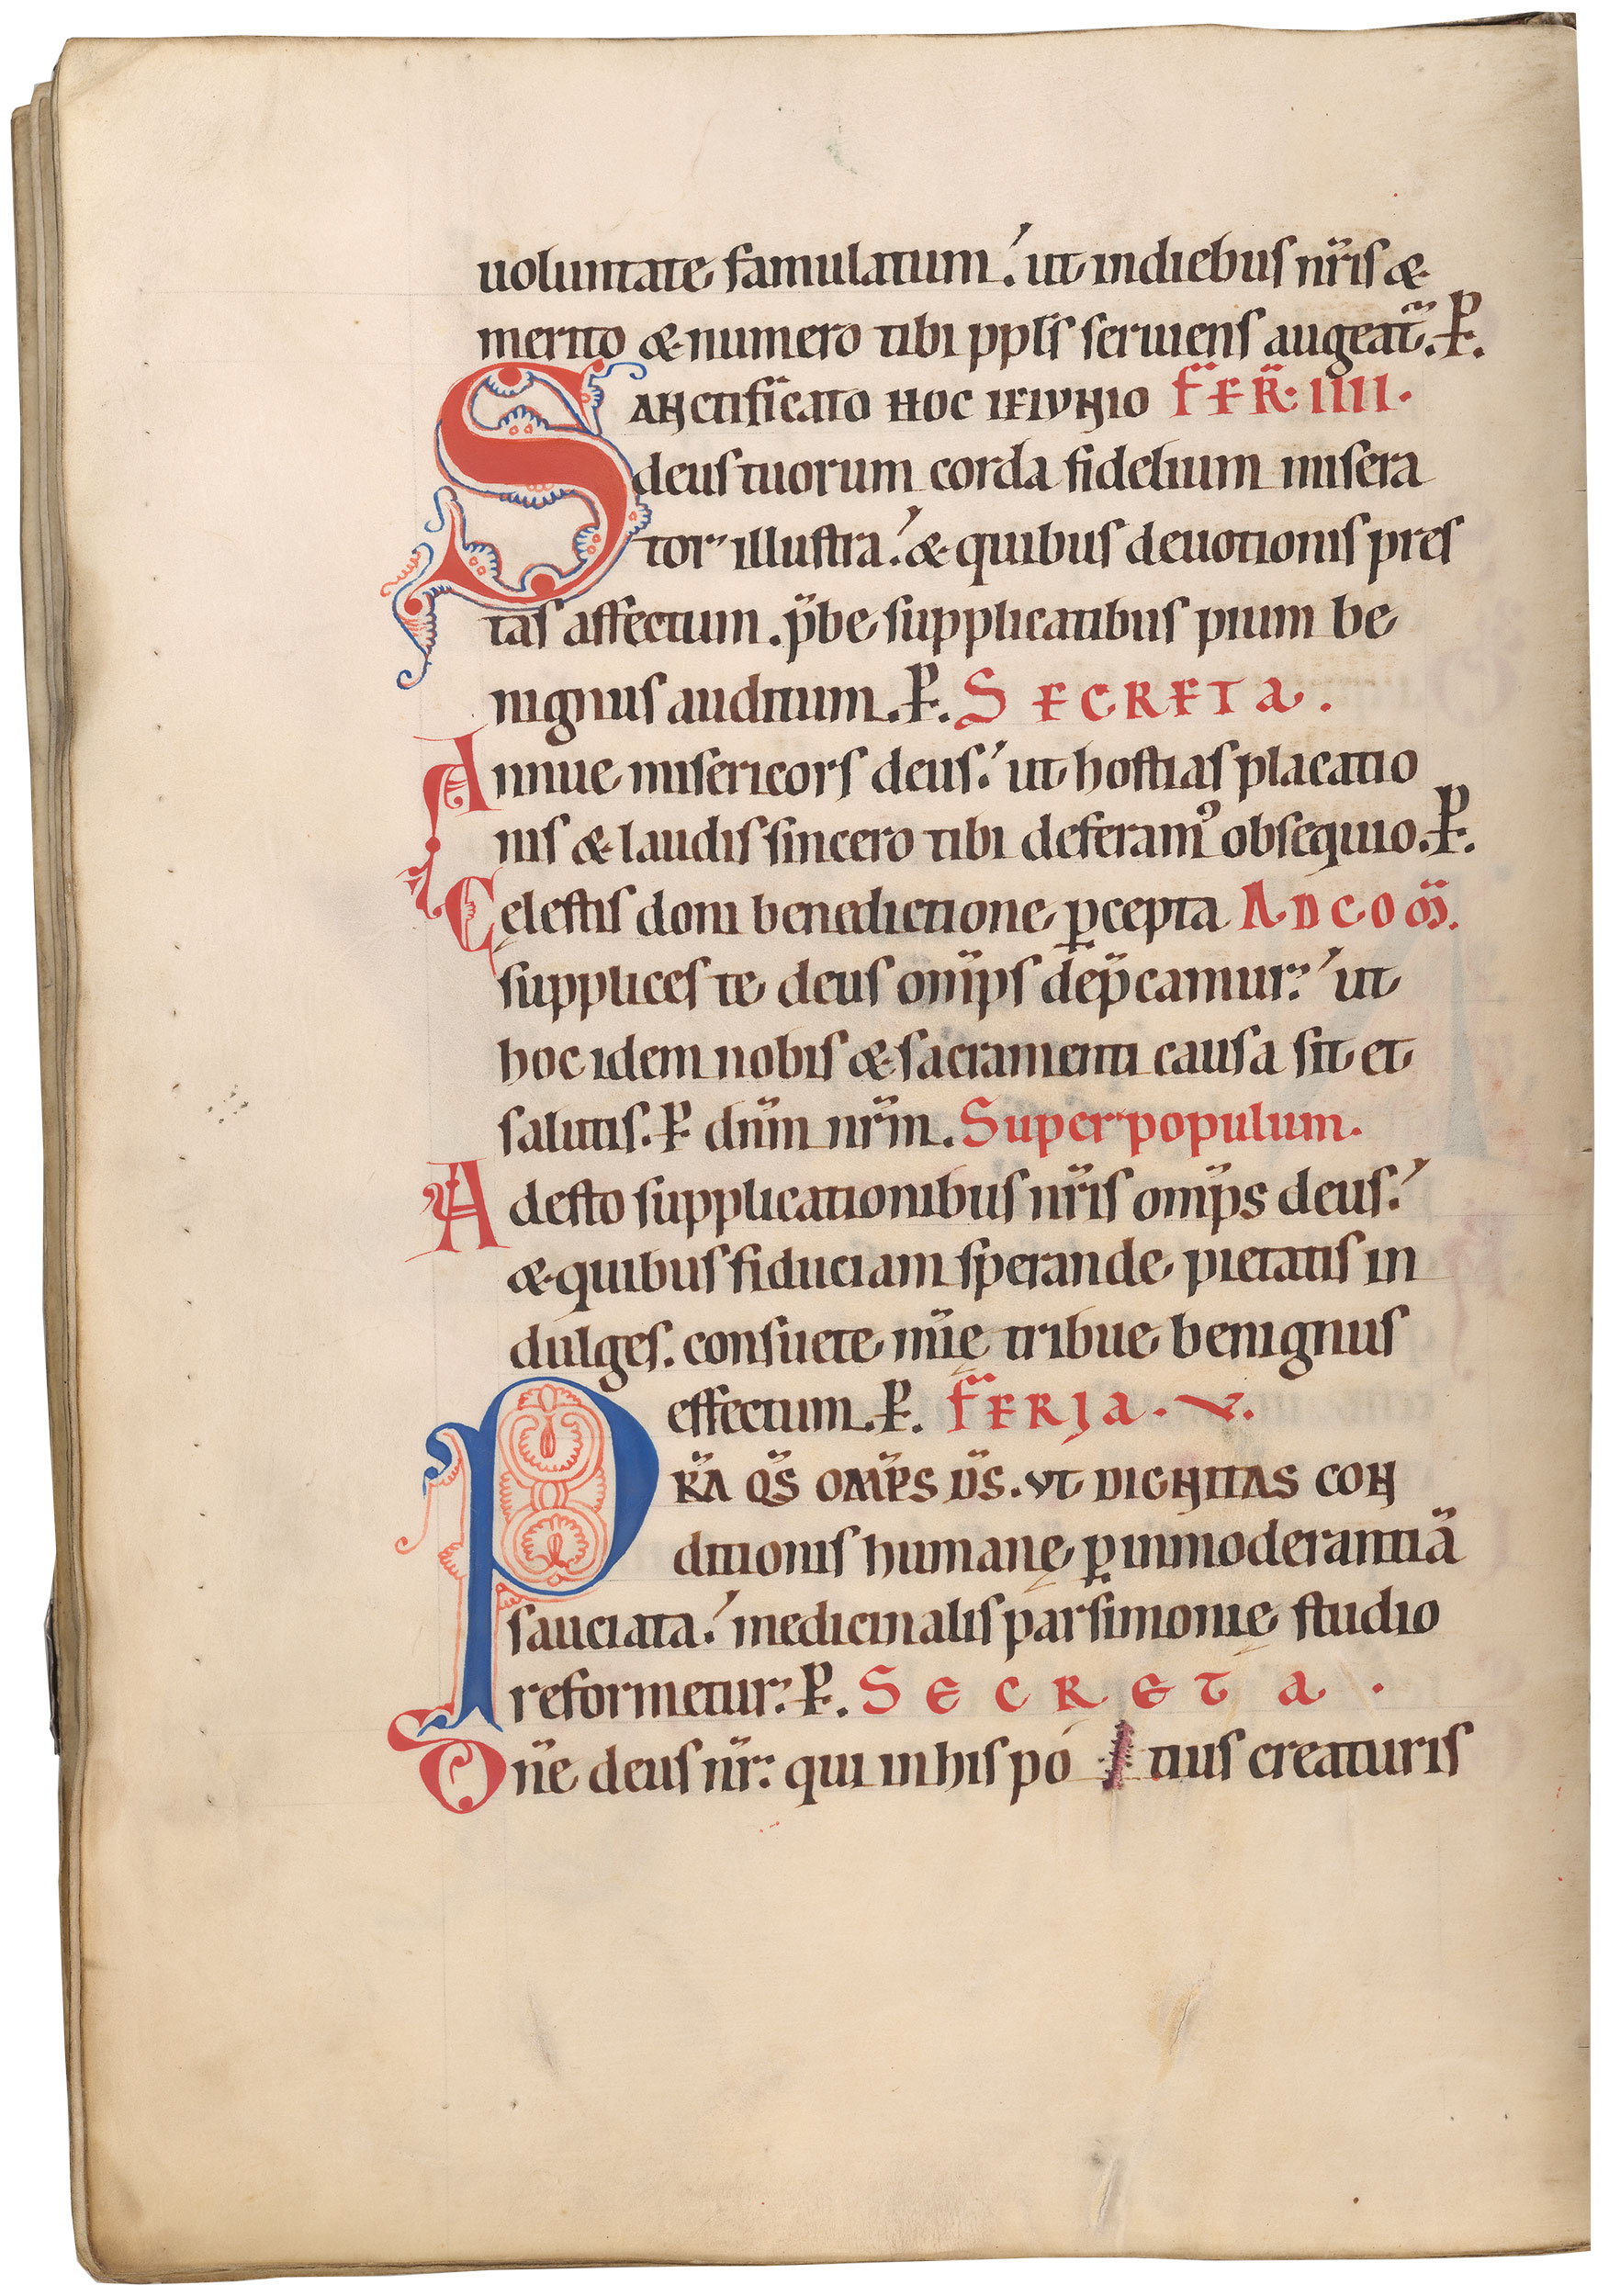 uoluntate famulatum. ut in diebus nr̄is &
merito & numero tibi ppl̄s seruiens augeat̄. P̵.
SANCTIFICATO HOC IEIUNIO FER̄. IIII.
deus tuorum corda fidelium misera
tor illustra. & quibus deuotionis pres
tas affectum. p̄be supplicantibus pium be
nignus auditum. P̵. SECRETA.
Annue misericors deus. ut hostias placatio
nis & laudis sincero tibi deferamꝰ obsequio. P̵.
Cęlestis doni benedictione ꝑcepta AD COM̄.
supplices te deus omīps dep̄camur. ut
hoc idem nobis & sacramenti causa sit et
salutis. P̵ dn̄m nr̄m. Super populum.
Adesto supplicationibus nr̄is omīps deus.
& quibus fiduciam sperande pietatis in
dulges. consuete mīę tribue benignus
effectum. P̵. FERIA. V.
PR̄A QS̄ OMP̄S DS̄. UT DIGNITAS CON
ditionis humanę ꝑ inmoderantiā
sauciata. medicinalis parsimonię studio
reformetur. P̵. SECRETA.
Dn̄e deus nr̄. qui in his po tius creaturis